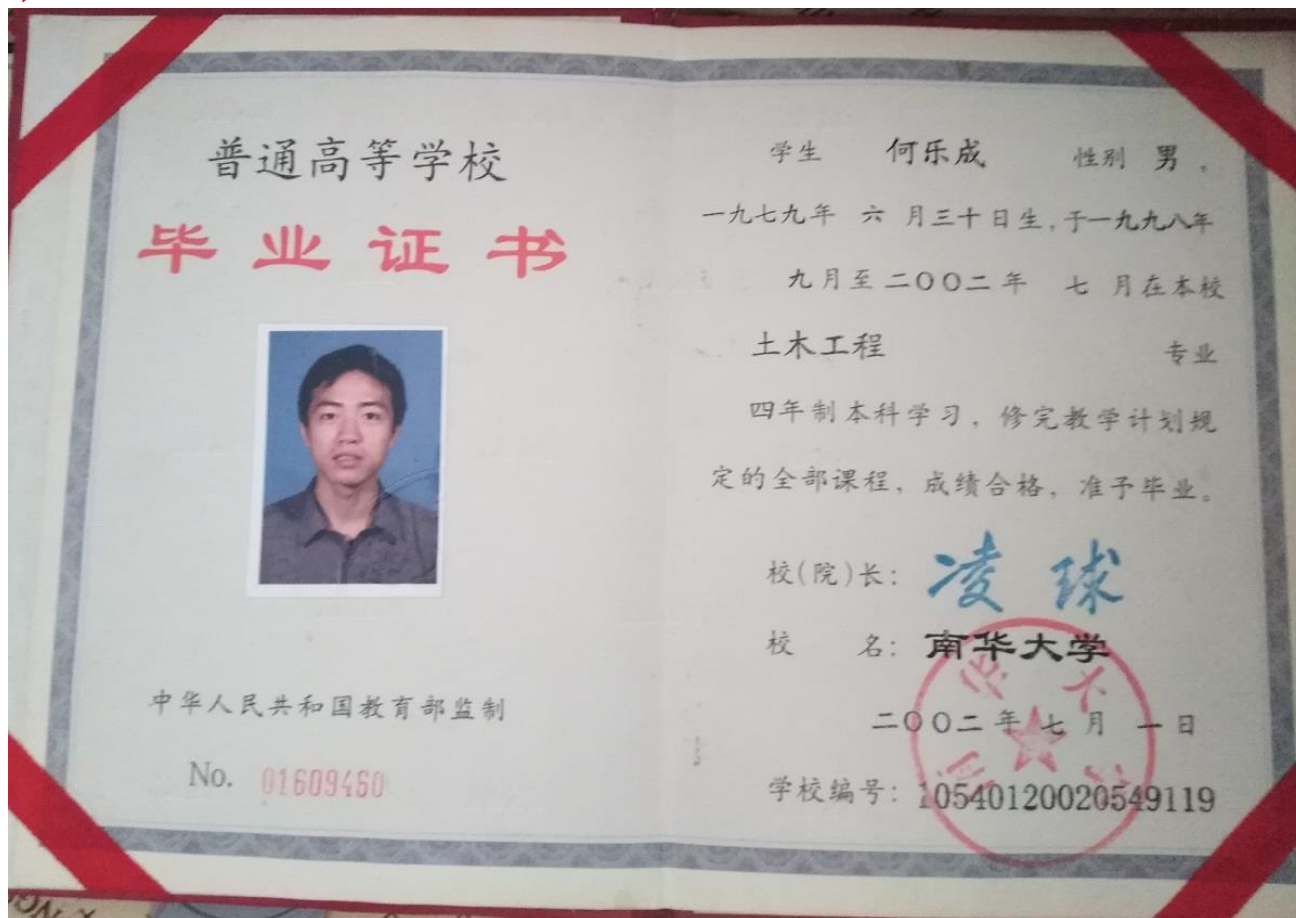 普通高等学校
毕业证书
中华人民共和国教育部监制
No. 01609460
学生 何乐成 性别 男，
一九七九年 六 月三十日生，于一九九八年
九月至二〇〇二年 七 月在本校
土木工程 专业
四年制本科学习，修完教学计划规
定的全部课程，成绩合格，准予毕业。
校(院)长：凌球
校 名：南华大学
二〇〇二年 七 月 一 日
学校编号：105401200205491​19